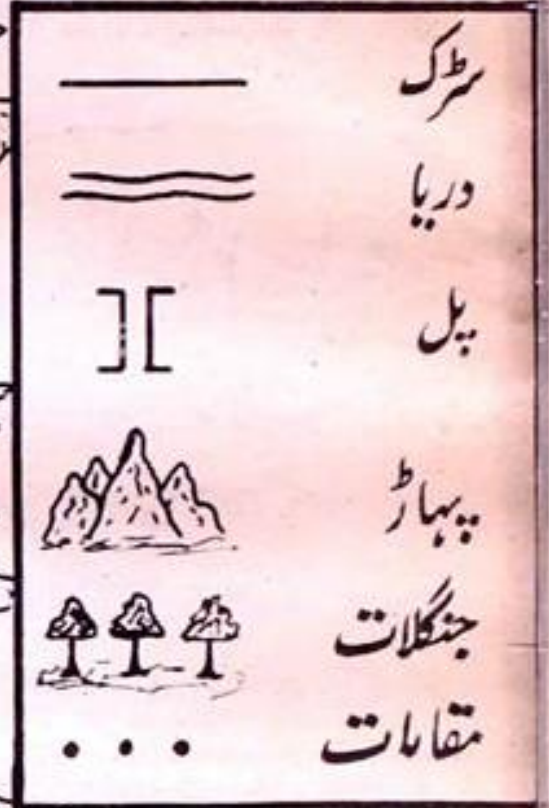 سڑک
دریا
پل
پہاڑ
جنگلات
مقامات